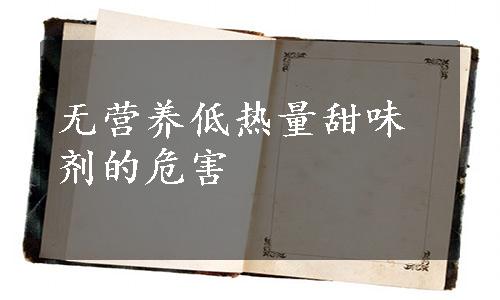 无营养低热量甜味
剂的危害